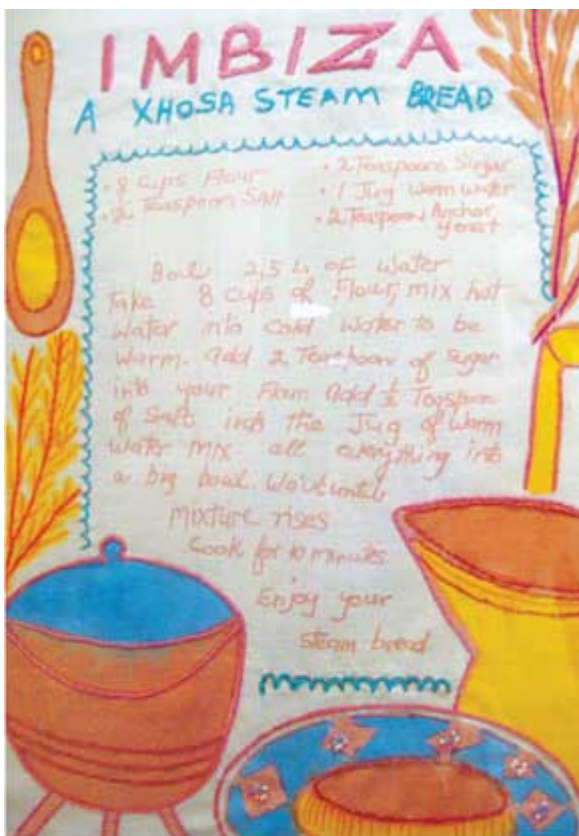 IMBIZA
A XHOSA STEAM BREAD
• 8 cups Flour
• 2 Teaspoon Salt
• 2 Teaspoons Sugar
• 1 Jug warm water
• 2 Teaspoon Anchor
yeast
Boil 2,5 L of water
Take 8 cups of Flour, mix hot
water into cold water to be
warm. add 2 Teaspoon of sugar
into your Flour add ½ Teaspoon
of Salt into the Jug of warm
water mix all everything into
a big bowl. Wait until
mixture rises
Cook for 10 minutes
Enjoy your
steam bread